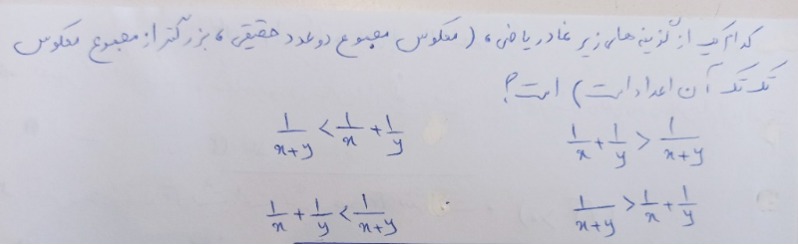 کدام یک از گزینه های زیر نماد ریاضی، (معکوس مجموع دو عدد حقیقی، بزرگتر از مجموع معکوس
تک تک آن اعداد است) است؟
1/x + 1/y > 1/(x+y)    1/(x+y) < 1/x + 1/y
1/(x+y) > 1/x + 1/y    1/x + 1/y < 1/(x+y)